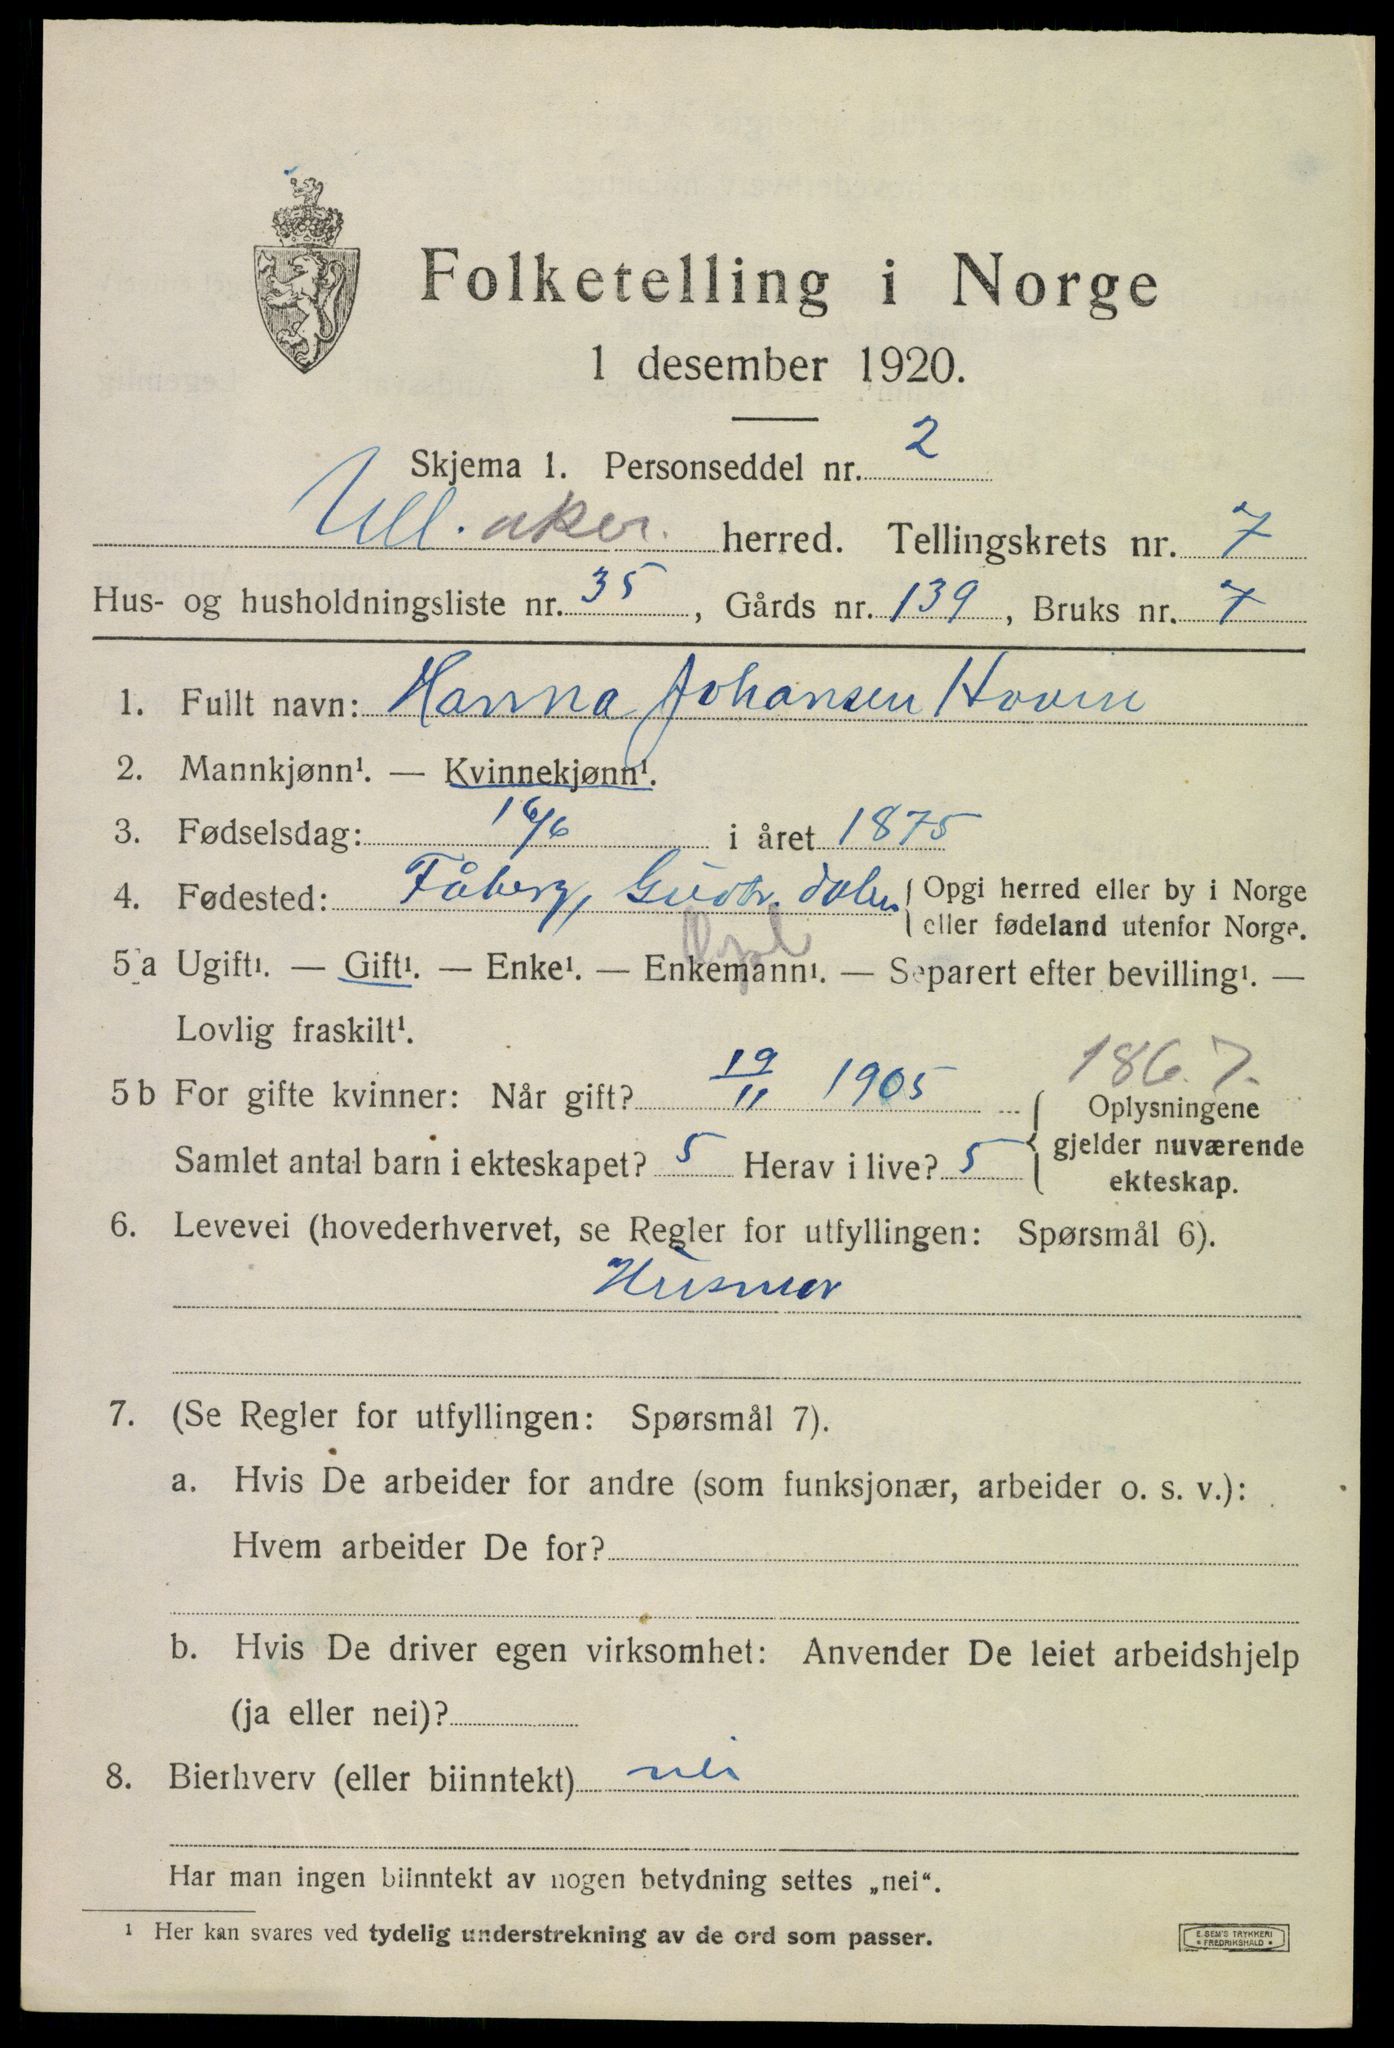 Folketelling i Norge
1 desember 1920.
Skjema 1. Personseddel nr. 2
Ull.aker. herred. Tellingskrets nr. 7
Hus- og husholdningsliste nr. 35, Gårds nr. 139, Bruks nr. 7
1. Fullt navn: Hanna Johansen Hovin
2. Mannkjønn¹. — Kvinnekjønn¹.
3. Fødselsdag: 16/6 i året 1875
4. Fødested: Fåberg, Gudbr.dalen { Opgi herred eller by i Norge
eller fødeland utenfor Norge.
Opl
5 a Ugift¹. — Gift¹. — Enke¹. — Enkemann¹. — Separert efter bevilling¹. —
Lovlig fraskilt¹.
186.7.
5 b For gifte kvinner: Når gift? 19/11 1905 { Oplysningene
gjelder nuværende
ekteskap.
Samlet antal barn i ekteskapet? 5 Herav i live? 5
6. Levevei (hovederhvervet, se Regler for utfyllingen: Spørsmål 6).
Husmor
7. (Se Regler for utfyllingen: Spørsmål 7).
a. Hvis De arbeider for andre (som funksjonær, arbeider o. s. v.):
Hvem arbeider De for?
b. Hvis De driver egen virksomhet: Anvender De leiet arbeidshjelp
(ja eller nei)?
8. Bierhverv (eller biinntekt) nei
Har man ingen biinntekt av nogen betydning settes „nei“.
¹ Her kan svares ved tydelig understrekning av de ord som passer.
E. SEM'S TRYKKERI
* FREDRIKSHALD *